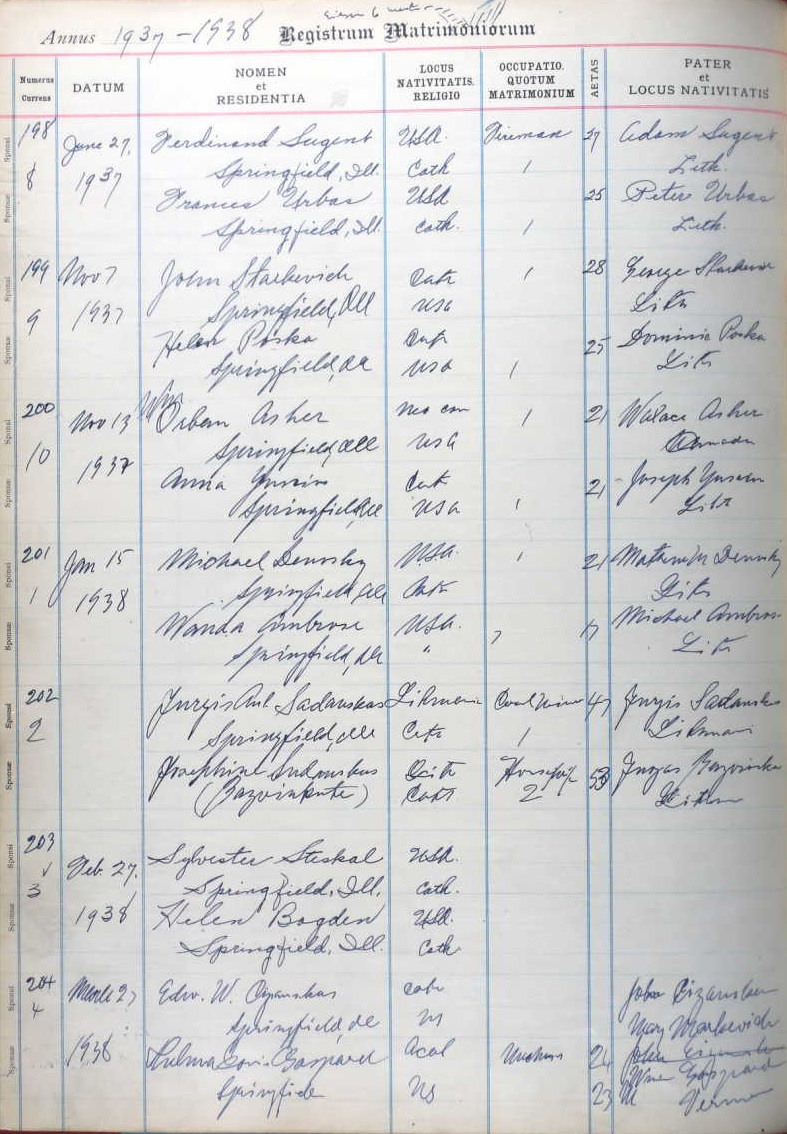 Annus 1937-1938 Registrum Matrimoniorum
Numerus Currens DATUM NOMEN et RESIDENTIA LOCUS NATIVITATIS. RELIGIO OCCUPATIO. QUOTUM MATRIMONIUM AETAS PATER et LOCUS NATIVITATIS
198 June 27, Ferdinand Sugent USA. Fireman 27 Adam Sugent
Sponsi Springfield, Ill. Cath 1 Lith.
8 1937 Frances Urbas USA 25 Peter Urbas
Sponsae Springfield, Ill. Cath. 1 Lith.
199 Nov 7 John Starkevich Cath 1 28 George
Sponsi Springfield, Ill USA Lith
9 1937 Helen Poska Cath 25 Dominic Poska
Sponsae Springfield, Ill USA 1 Lith
200 Nov 13 Wm Orben Asher non cath 1 21 Walace Asher
Sponsi Springfield, Ill USA
10 1937 Anna Cath 21 Joseph
Sponsae Springfield, Ill USA 1 Lith
201 Jan 15 Michael Denosky USA. 1 21 Denosky
Sponsi Springfield, Ill Cath Lith
1 1938 Wanda Ambrose USA. 17 Michael Ambrose
Sponsae Springfield, Ill " Lith
202 Jurgis Ant. Sadauskas Coal Miner 47 Jurgis Sadauskas
Sponsi Springfield, Ill Cath 1
2 Josephine Lith 53 Jurgas
Sponsae Cath 2
203 Feb. 27. Sylvester Steskal USA.
Sponsi Springfield, Ill. Cath.
3 1938 Helen Bogden USA.
Sponsae Springfield, Ill. Cath
204 March 27 Edw. W. Cizauskas Cath John Cizauskas
Sponsi 4 Springfield, Ill US Mary Markevich
1938 Gaspard 24 John
Sponsae Springfield US 23 Gaspard